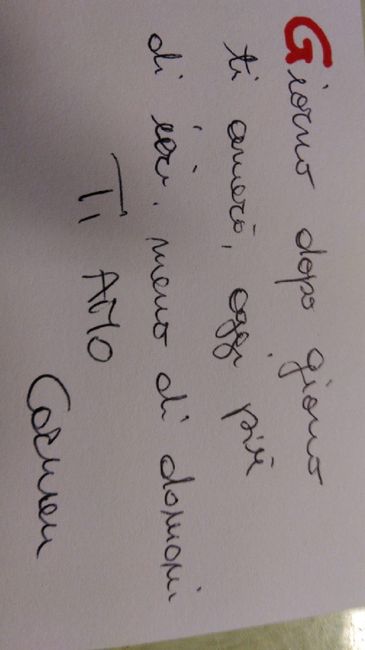 Giorno dopo giorno
ti amerò, oggi più
di ieri. meno di domani
TI AMO
Carmen